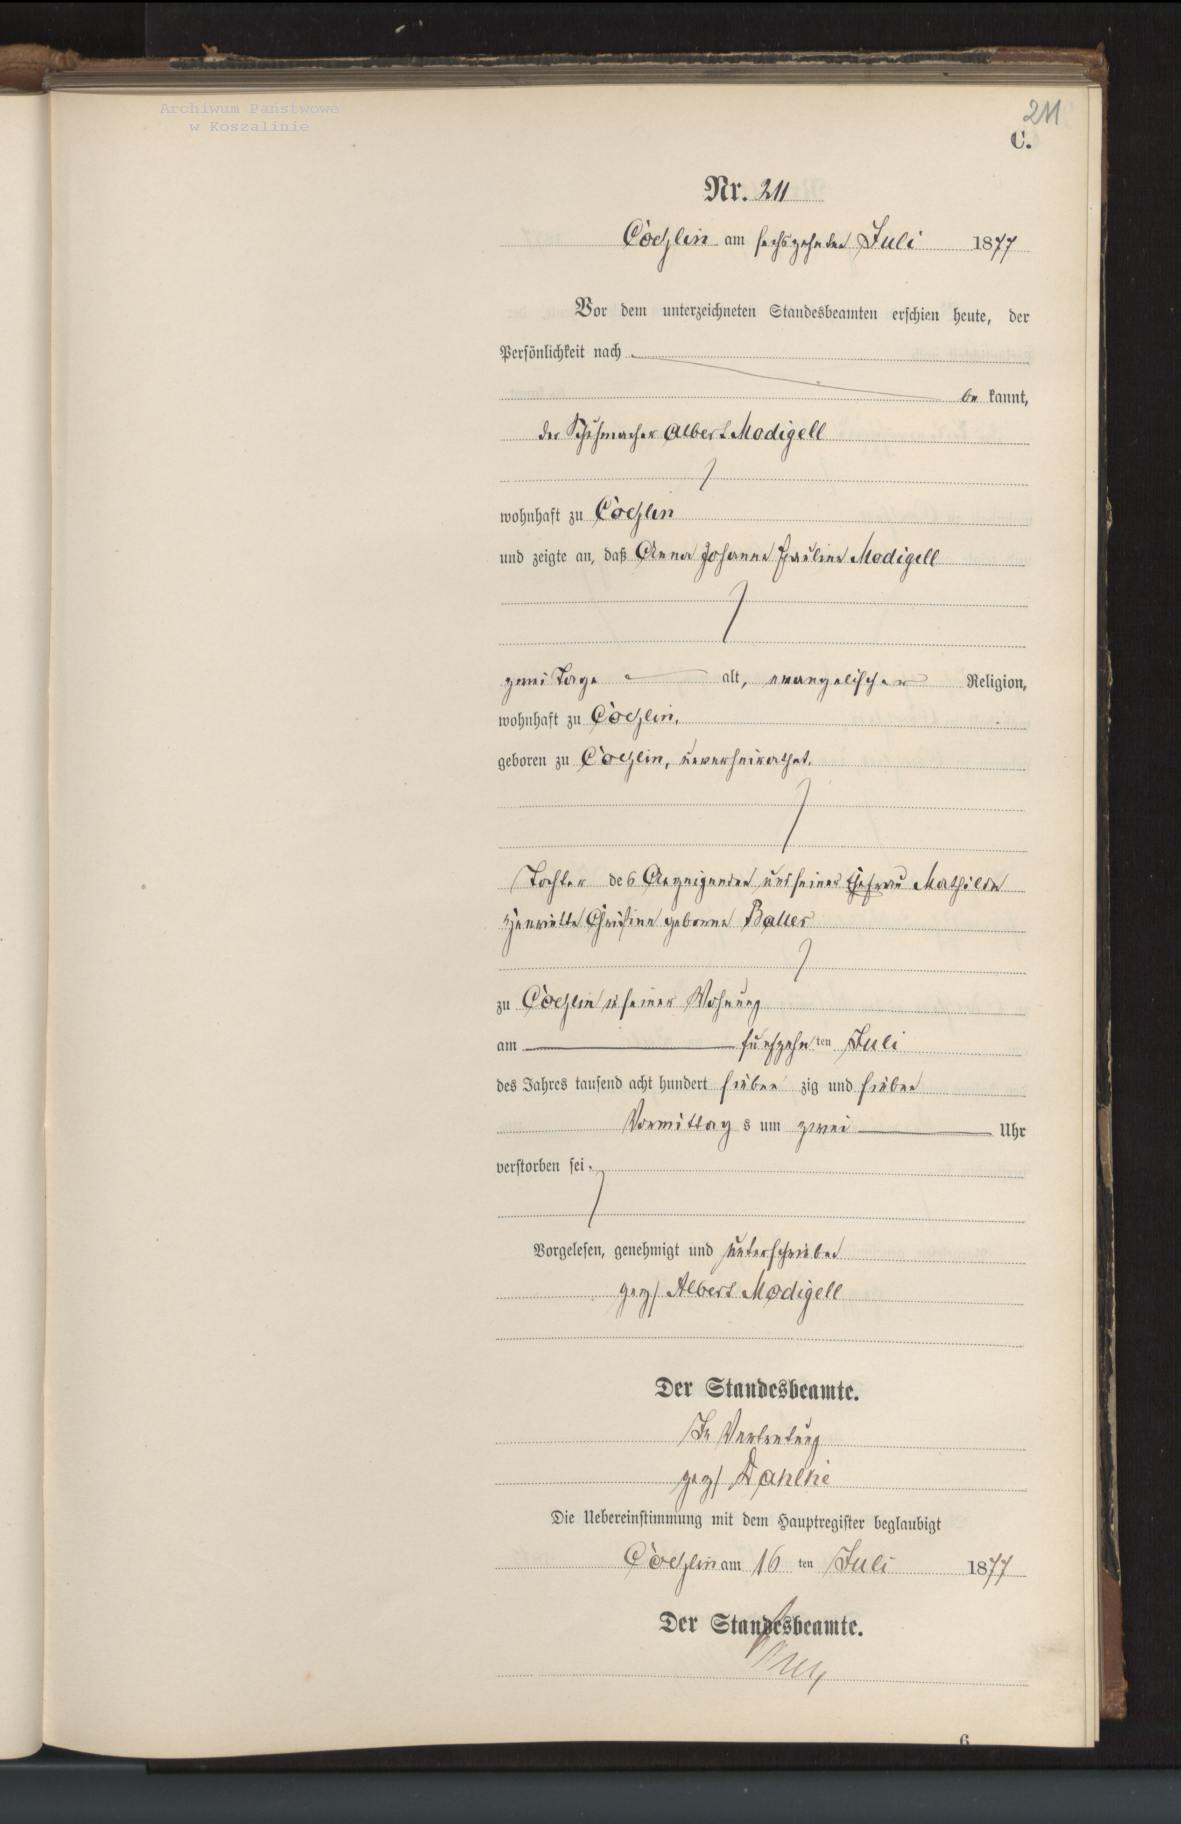 Archiwum Państwowe
w Koszalinie
211
C.
Nr. 211
Coeslin am sechszehnten Juli 1877
Vor dem unterzeichneten Standesbeamten erschien heute, der
Persönlichkeit nach
be kannt,
der Schuhmacher Albert Modigell
wohnhaft zu Coeslin
und zeigte an, daß Anna Johanne Pauline Modigell
zwei Tage alt, evangelischer Religion,
wohnhaft zu Coeslin,
geboren zu Coeslin, unverheirathet,
Tochter des Anzeigenden und seiner Ehefrau Mathilde
Henriette Christine geborene
zu Coeslin in seiner Wohnung
am fünfzehn ten Juli
des Jahres tausend acht hundert sieben zig und sieben
Vormittag s um zwei Uhr
verstorben sei.
Vorgelesen, genehmigt und unterschrieben
gez/ Albert Modigell
Der Standesbeamte.
In Vertretung
gez/ Dahlke
Die Uebereinstimmung mit dem Hauptregister beglaubigt
Coeslin am 16 ten Juli 1877
Der Standesbeamte.
6